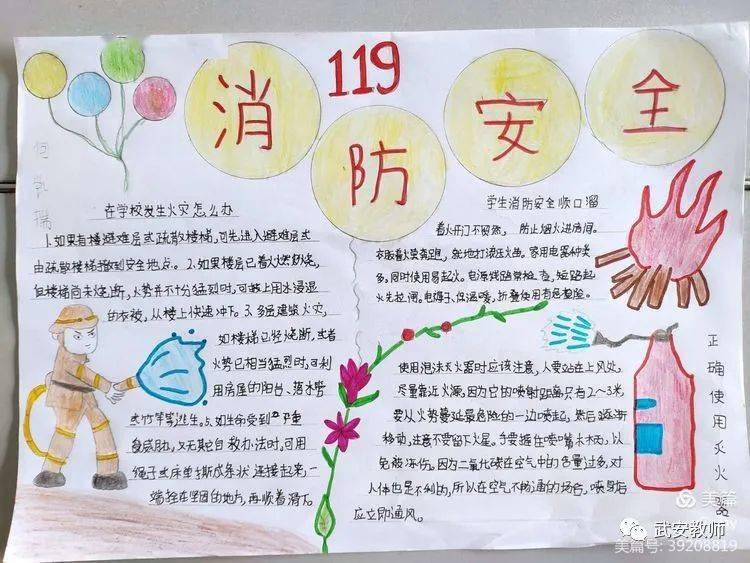 119
消防安全
在学校发生火灾怎么办
1.如果有楼避难层或疏散楼梯,可先进入避难层或
由疏散楼梯撤到安全地点。2.如果楼层已着火燃烧,
但楼梯尚未烧断,火势并不十分猛烈时,可披上用水浸湿
的衣被,从楼上快速冲下。3.多层建筑火灾,
如楼梯已经烧断,或者
火势已相当猛烈时,可利
用房屋的阳台、落水管
或竹竿等逃生。5.如生命受到严重
威胁,又无其他自救办法时,可用
绳子或床单撕成条状连接起来,一
端拴在坚固的地方,再顺着滑下。
学生消防安全顺口溜
着火开门不留然,防止烟火进房间。
衣服着火莫奔跑,就地打滚压火苗。家用电器种类
多,同时使用易起火。电源线路常检查,短路起
火先拉闸。电褥子,保温暖,折叠使用有危险。
使用泡沫灭火器时应该注意,人要站在上风处,
尽量靠近火源,因为它的喷射距离只有2~3米,
要从火势蔓延最危险的一边喷起,然后逐渐
移动,注意不要留下火星。手要握在喷嘴木柄,以
免被冻伤。因为二氧化碳在空气中的含量过多,对
人体也是不利的,所以在空气不畅通的场合,喷身后
应立即通风。
正确使用灭火器
美篇
武安教师
美篇号: 39208819